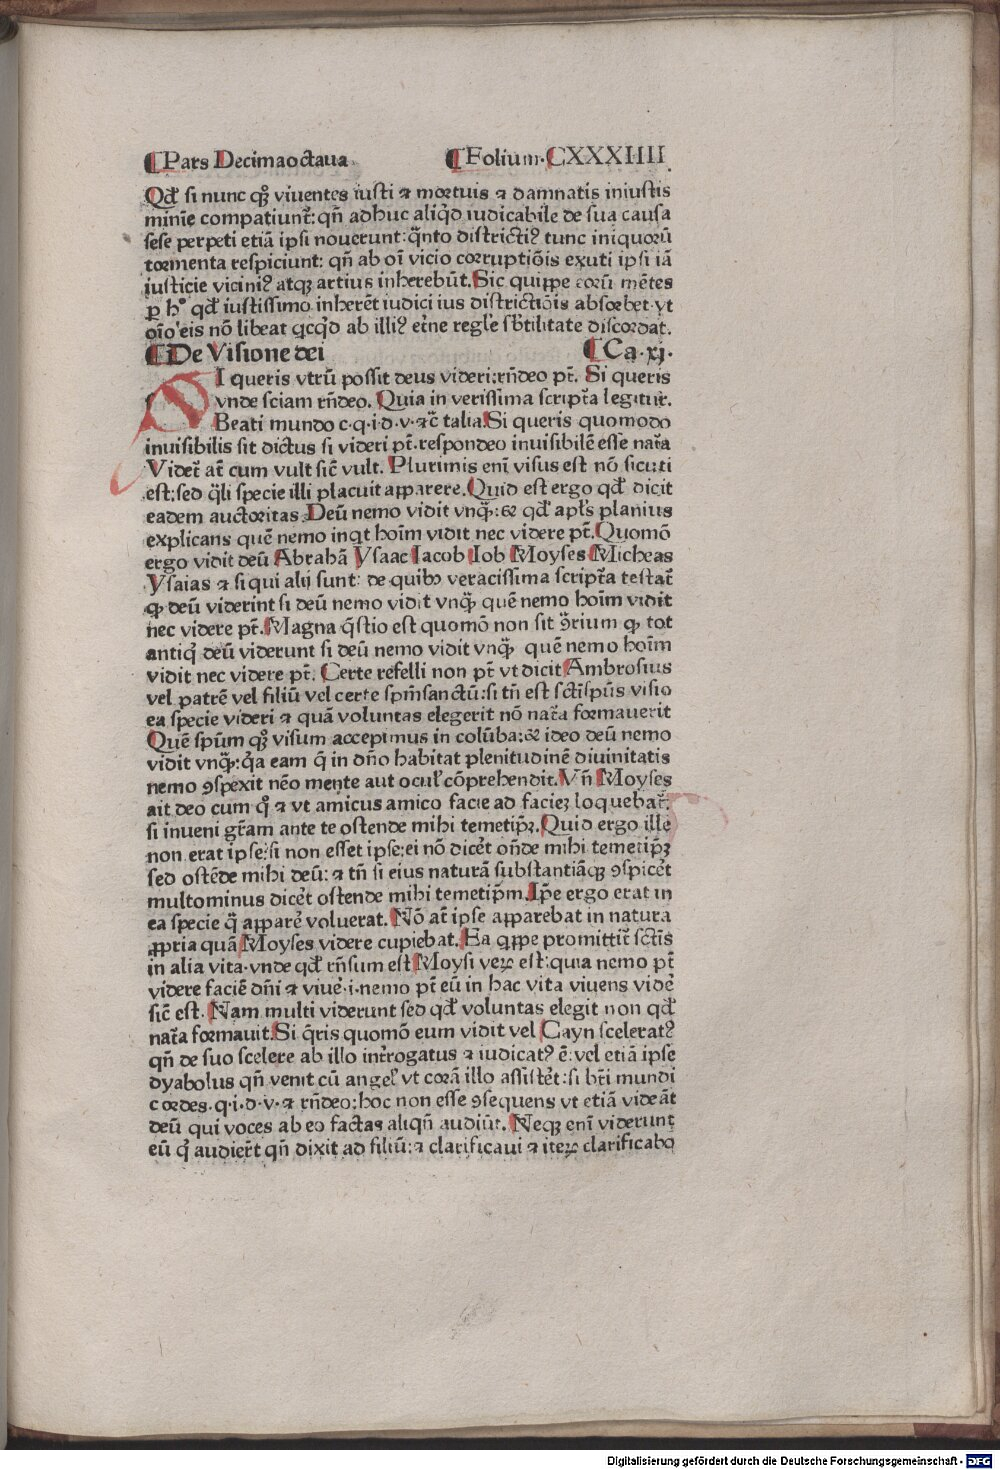 ¶Pars Decimaoctaua ¶Folium·CXXXIIII
Qđ si nunc qꝫ viuentes iusti ⁊ mortuis ⁊ damnatis iniustis
minīe compatiunt̃: qñ adhuc aliqͥd iudicabile de sua causa
sese perpeti etiã ipsi nouerunt: q̃nto districtiꝰ tunc iniquorũ
tormenta respiciunt: qñ ab oī vicio corruptiõis exuti ipsi iã
iusticie viciniꝰ atqꝫ artius inherebũt. Sic quippe eorũ mẽtes
ꝑ hͦ qđ iustissimo inherẽt iudici ius districtiõis absorbet·vt
oīo eis nõ libeat qͥcqͥd ab illiꝰ et̃ne regl̃e sb̃tilitate discordat.
¶De Visione dei ¶Ca·xj·
SI queris vtrũ possit deus videri: rñdeo pt̃. Si queris
vnde sciam rñdeo. Quia in verissima script̃a legitur.
Beati mundo c·q·i·d·v·⁊c̃ talia. Si queris quomodo
inuisibilis sit dictus si videri pt̃·respondeo inuisibilẽ esse nat̃a
Videt̃ at̃ cum vult sic̃ vult. Plurimis enī visus est nõ sicuti
est: sed q̃li specie illi placuit apparere. Quid est ergo qđ dicit
eadem auctoritas Deũ nemo vidit vnq̃ꝫ: ⁊ qđ apl̃s planius
explicans quẽ nemo inqt hoīm vidit nec videre pt̃. Quomõ
ergo vidit deũ Abrahã Ysaac Iacob Iob Moyses Micheas
Ysaias ⁊ si qui alij sunt: de quibꝰ veracissima script̃a testat̃
ꝙ deũ viderint si deũ nemo vidit vnq̃ꝫ quẽ nemo hoīm vidit
nec videre pt̃. Magna q̃stio est quomõ non sit ꝯ̃rium ꝙ tot
antiqͥ deũ viderunt si deũ nemo vidit vnq̃ꝫ quẽ nemo hoīm
vidit nec videre pt̃. Certe refelli non pt̃ vt dicit Ambrosius
vel patrẽ vel filiũ vel certe spm̃sanctũ: si tñ est sctĩspũs visio
ea specie videri ⁊ quã voluntas elegerit nõ nat̃a formauerit
Quẽ spũm qꝫ visum accepimus in colũba: ⁊ ideo deũ nemo
vidit vnq̃ꝫ: qͥa eam q̃ in dño habitat plenitudinẽ diuinitatis
nemo ꝯspexit nẽo mente aut ocul̃ cõprehendit. Vñ Moyses
ait deo cum qͦ ⁊ vt amicus amico facie ad facieꝫ loquebat̃:
si inueni gr̃am ante te ostende mihi temetip̃ꝫ. Quid ergo ille
non erat ipse: si non esset ipse: ei nõ dicet̃ oñde mihi temetip̃ꝫ
sed ostẽde mihi deũ: ⁊ tñ si eius naturã substantiãqꝫ ꝯspicet̃
multominus dicet̃ ostende mihi temetip̃m. Ip̃e ergo erat in
ea specie q̃ appare᷑ voluerat. Nõ at̃ ipse apparebat in natura
ꝓpria quã Moyses videre cupiebat. Ea qͥppe promittit̃ sctĩs
in alia vita·vnde qđ rñsum est Moysi veꝝ est: quia nemo pt̃
videre faciẽ dñi ⁊ viue᷑·i·nemo pt̃ eũ in hac vita viuens vide᷑
sic̃ est. Nam multi viderunt sed qđ voluntas elegit non qđ
nat̃a formauit. Si q̃ris quomõ eum vidit vel Cayn sceleratꝰ
qñ de suo scelere ab illo int̃rogatus ⁊ iudicatꝰ ẽ: vel etiã ipse
dyabolus qñ venit cũ angel̃ vt corã illo assistet̃: si bt̃i mundi
cordes·q·i·d·v·⁊ rñdeo: hoc non esse ꝯsequens vt etiã videãt
deũ qui voces ab eo factas aliqñ audiũt. Neqꝫ enī viderunt
eũ qͥ audiert̃ qñ dixit ad filiũ: ⁊ clarificaui ⁊ iteꝝ clarificabo
Digitalisierung gefördert durch die Deutsche Forschungsgemeinschaft - DFG